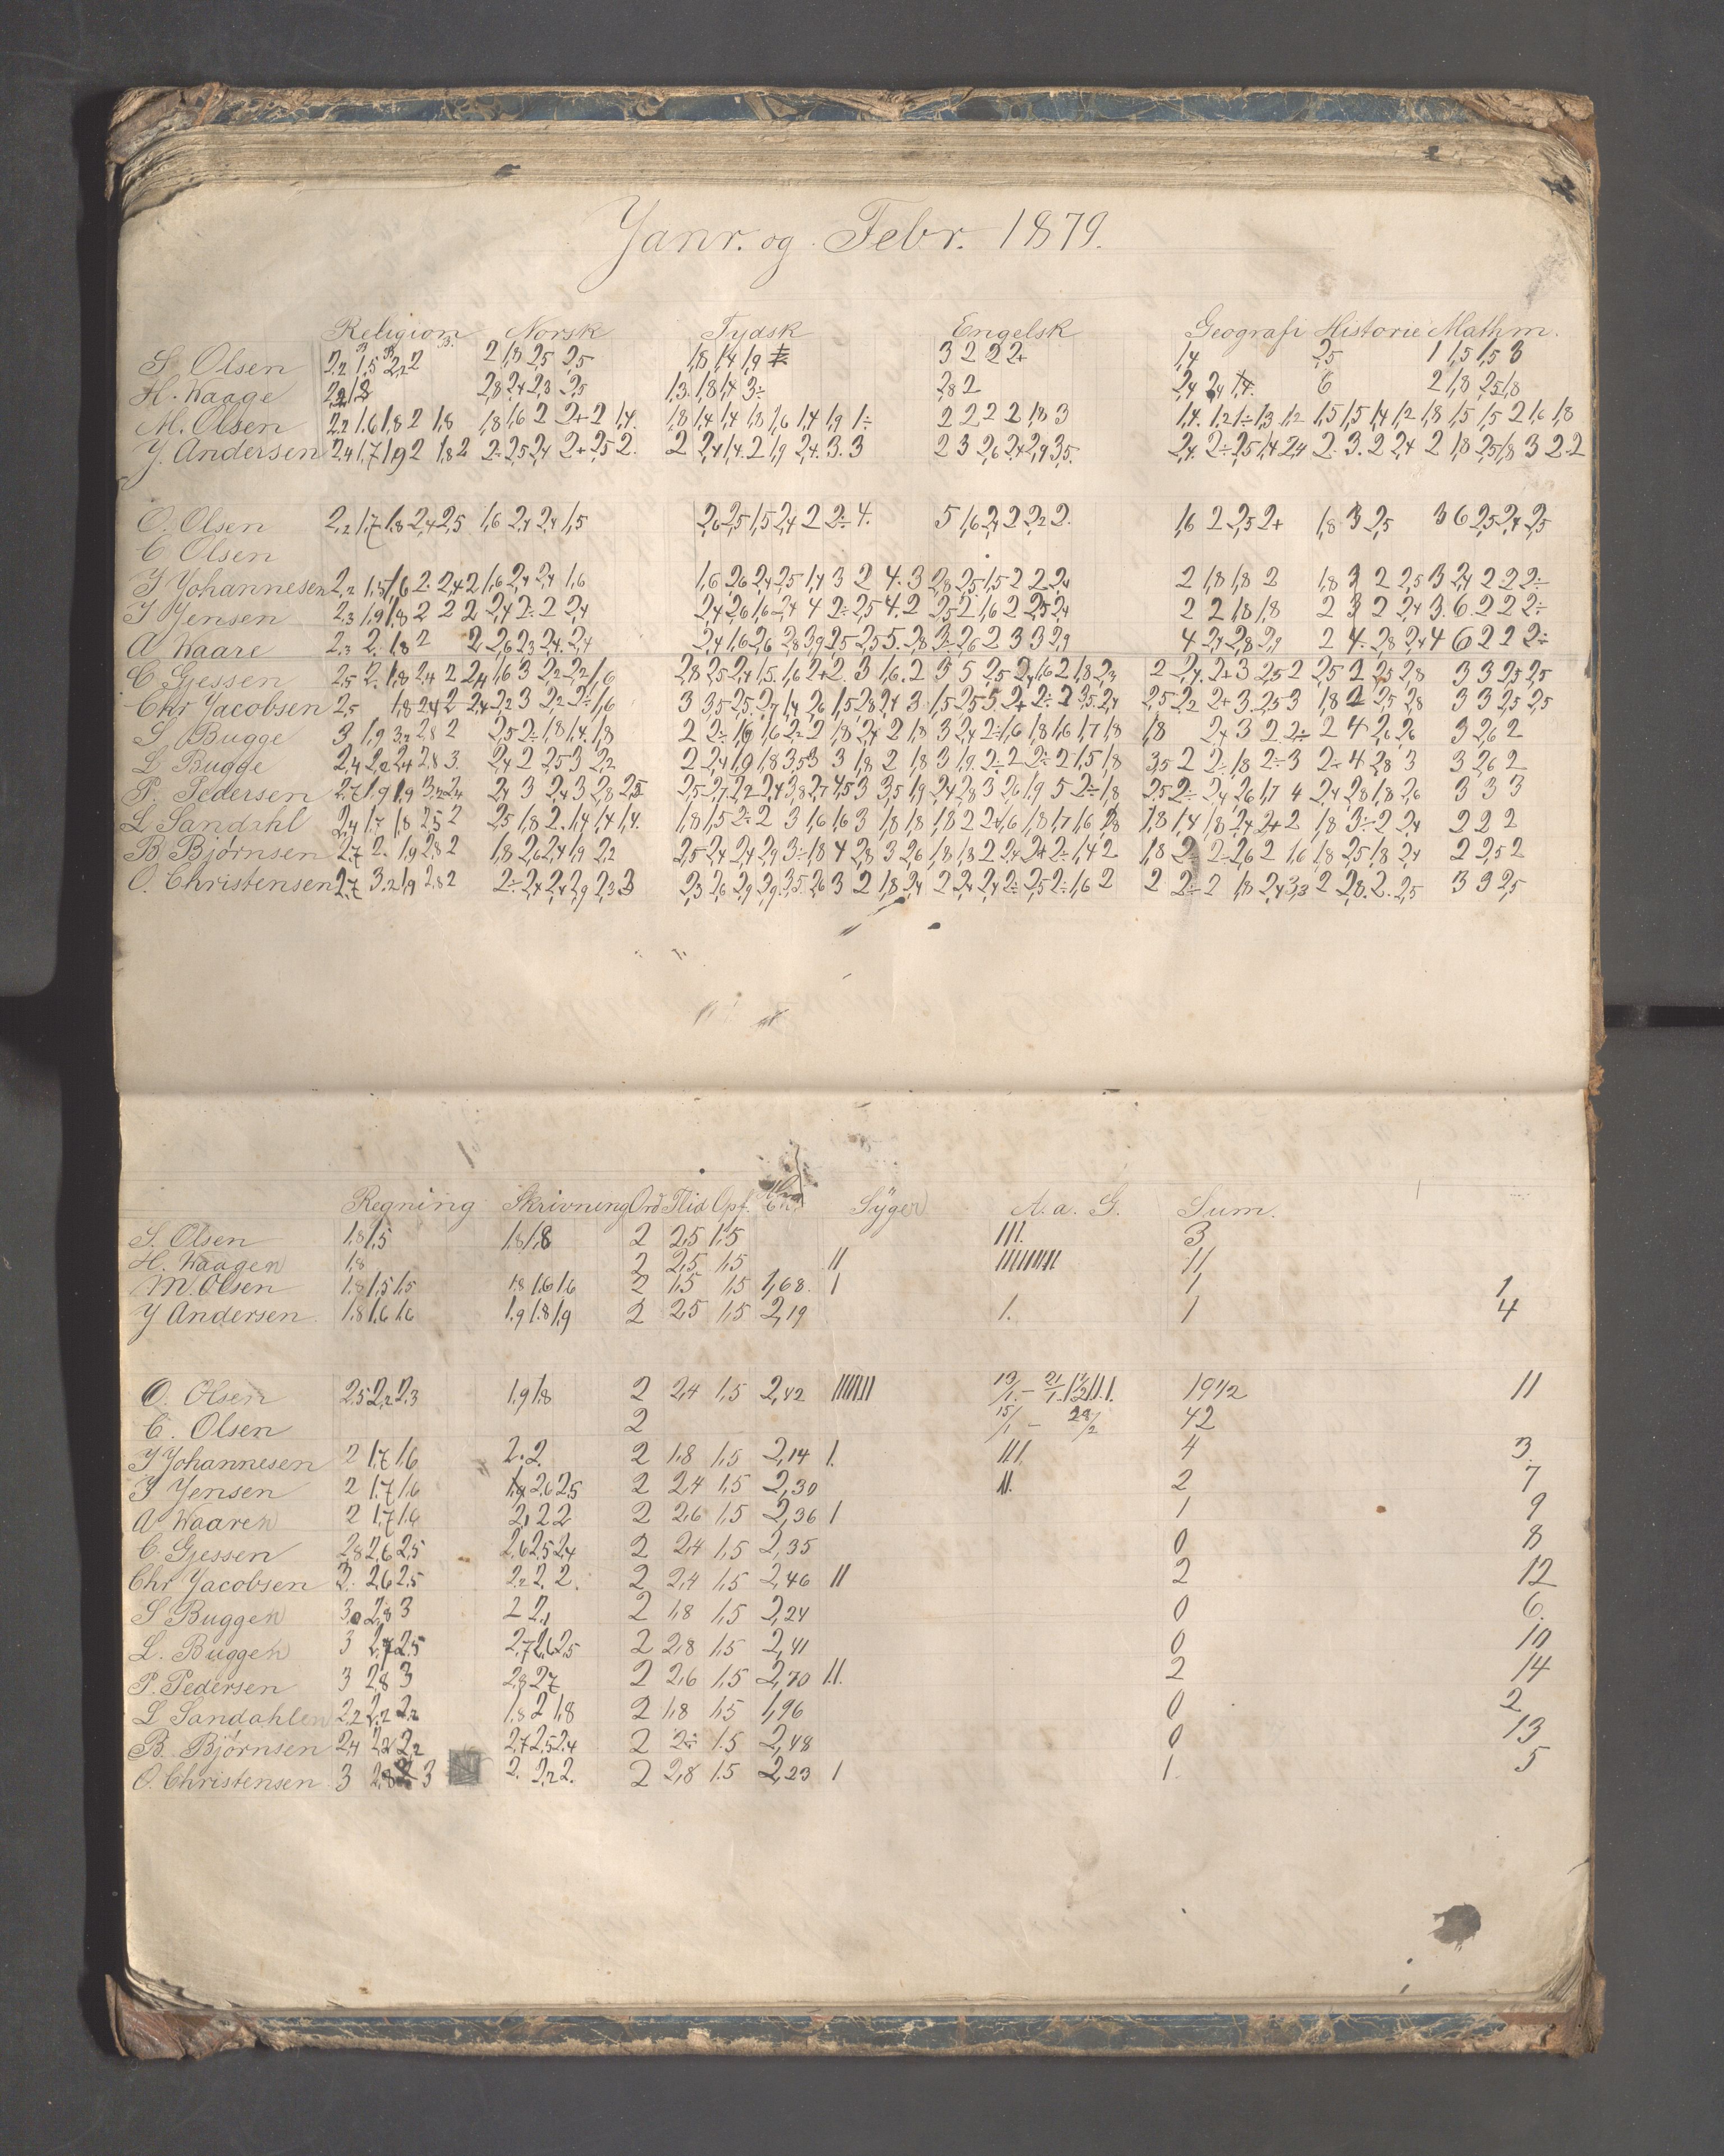 Janr. og Febr. 1879.
Religion Norsk Tydsk Engelsk Geografi Historie Mathm.
S. Olsen 2,2 1,5 2,2 2 2 1,8 2,5 2,5 1,8 1,4 1,9 3 2 2 2+ 1,4 2,5 1 1,5 1,5 3
H. Waage 2,8 2,4 2,3 2,5 1,3. 1,8 1,4 3÷ 2,8 2 2,4 2,4 1,4. 6 2 1,8 2,5 1,8
M. Olsen 2,2 1,6 1,8 2 1,8 1,8 1,6 2 2+ 2 1,4. 1,8 1,4 1,4 1,8 1,6 1,4 1,9 1÷ 2 2 2 2 1,8 3 1,4. 1,2 1÷ 1,3 1,2 1,5 1,5 1,4 1,2 1,8 1,5 1,5 2 1,6 1,8
J. Andersen 2,4 1,7 1,9 2 1,8 2 2÷ 2,5 2,4 2+ 2,5 2. 2 2,4 1,4. 2 1,9 2,4. 3. 3 2 3 2,6 2,4 2,9 3,5. 2,4. 2÷ 2,5 1,4 2,4 2. 3. 2 2,4 2 1,8 2,5 1,8 3 2.2
O. Olsen 2,2 1,7 1,8 2,4 2,5 1,6 2,4 2,4 1,5 2,6 2,5 1,5 2,4 2 2÷ 4. 5 1,6 2,4 2 2,2 2. 1,6 2 2,5 2+ 1,8 3 2,5 3 6 2,5 2,4 2,5
C Olsen
J Johannesen 2,2 1,5 1,6 2. 2,4 2 1,6 2,4 2,4 1,6 1,6 2,6 2,4 2,5 1,4 3 2 4. 3 2,8 2,5 1,5 2 2 2,4 2 1,8 1,8 2 1,8 3 2 2,5 3 2,4 2 2 2÷
J Jensen 2,3 1,9 1,8 2 2 2 2,4 2÷ 2 2,4 2,4 2,6 1,6 2,4 4 2÷ 2,5 4. 2 2,5 2 1,6 2 2,5 2,4 2 2 1,8 1,8 2 3 2 2,4 3. 6. 2 2 2÷
A Waare 2,3 2. 1,8 2 2 2,6 2,3 2,4. 2,4 2,4 1,6 2,6 2,8 3,9 2,5 2,5 5. 2,8 3÷ 2,6 2 3 3 2,9 4 2,4 2,8 2,9 2 4. 2,8 2,4 4 6 2 2 2÷
C Gjessen 2,5 2. 1,8 2,4 2 2,4 1,6 3 2,2 2,2 1,6 2,8 2,5 2,4 1,5. 1,6 2+ 2. 3 1,6. 2 3 5 2,5 2,4 1,6 2 1,8 2,3 2 2,4. 2+ 3 2,5 2 2,5 2 2,5 2,8 3 3 2,5 2,5
Chr Jacobsen 2,5 1,8 2,4 2 2,4 2,2 3 2,2 2÷ 1,6 3 3,5 2,5 2,7 1,4 2,6 1,5 2,8 2,4 3 1,5 2,5 5 2+ 2÷ 2 3,5 2,4 2,5 2,2 2+ 3. 2,5 3 1,8 2 2,5 2,8 3 3 2,5 2,5
S Bugge 3 1,9 3,2 2,8 2 2,5 2÷ 1,8 1,4. 1,8 2 2÷ 1,6 1,6 2÷ 2 1,8 2,4 2 1,8 3 2,4 2÷ 1,6 1,8 1,6 1,7 1,8 1,8 2,4 3 2 2÷ 2 4 2,6 2,6 3 2,6 2
L Bugge 2,4 2,2 2,4 2,8 3. 2,4 2 2,5 3 2,2 2 2,4 1,9 1,8 3,5 3 3 1,8 2 1,8 3 1,9. 2÷ 2 2÷ 2 1,5 1,8 3,5 2 2÷ 1,8 2÷ 3 2÷ 4 2,8 3 3 2,6 2
P. Pedersen 2,7 1,9 1,9 3,2 2,4 2,4 3 2,4 3 2,8 2,5 2,5 2,7 2,2 2,4 3,8 2,7 4,5 3 3,5 1,9 2,4 2,8 3 2,6 1,9 5 2÷ 1,8 2,5 2÷ 2,4 2,6 1,7 4 2,4 2,8 1,8 2,6 3 3 3
L Sandahl 2,4 1,7 1,8 2,5 2 2,5 1,8 2. 1,4 1,4 1,4. 1,8 1,5 2÷ 2 3 1,6 1,6 3 1,8 1,8 1,8 2 2+ 1,6 1,8 1,7 1,6 2,8 1,8 1,4 1,8 2,4 2+ 2 1,8 3÷ 2 2,4 2 2 2
B Bjørnsen 2,7 2. 1,9 2,8 2 1,8 2,6 2,4 1,9 2,2 2,5 2,4 2,4 2,9 3÷ 1,8 4 2,8 3 2,6 1,8 1,8 2 2,4 2+ 2÷ 1,4 2 1,8 2÷ 2÷ 2,6 2 1,6 1,8 2,5 1,8 2,4 2 2,5 2
O. Christensen 2,7 3. 2,1 1,9 2,8 2 2÷ 2,4 2,4 2,9 2,3 3 2,3 2,6 2,9 2,9 3,5. 2,6 3 2 1,8 2,4 2 2,4 2,4 2÷ 2,5 2÷ 1,6 2 2 2÷ 2 1,8 2,4 3,3 2 2,8. 2. 2,5 3 3 2,5
Regning Skrivning Ord Flid Opf. Syger A. a. G. Sum.
S. Olsen 1,8 1,5 1,8 1,8 2 2,5 1,5 III. 3
H. Waagen 1,8 2 2,5 1,5 II 11
M. Olsen 1,8 1,5 1,5 1,8 1,6 1,6 2 1,5 1,5 1,68. I 1 1
J Andersen. 1,8 1,6 1,6 1,9 1,8 1,9 2 2,5 1,5 2,19 I. 1 4
O. Olsen 2,5 2,2 2,3 1,9 1,8 2 2,4 1,5 2,42 19 1/2 11
C. Olsen 2 15/1 – 28/2 42
J Johannesen 2 1,7 1,6 2. 2 2 1,8 1,5 2,14 I. III. 4 3.
J Jensen 2 1,7 1,6 1,9 2,6 2,5 2 2,4 1,5 2,30 II. 2 7
A Waaren 2 1,7 1,6 2,1 2 2 2 2,6 1,5 2,36 I 1 9
C. Gjessen 2,8 2,6 2,5 2,6 2,5 2,4 2 2,4 1,5 2,35 0 8
Chr Jacobsen 3. 2,6 2,5 2,2 2. 2. 2 2,4 1,5 2,46 II 2 12
S Buggen 3 2,8 3 2 2, 2 1,8 1,5 2,24 0 6.
L. Buggen 3 2,7 2,5 2,7 2,6 2,5 2 2,8 1,5 2,41 0 10
P. Pedersen 3 2,8 3 2,8 2,7 2 2,6 1,5 2,70 II. 2 14
L Sandahlen 2,2 2,2 2,2 1,8 2 1,8 2 1,8 1,5 1,96 0 2
B. Bjørnsen 2,4 2,2 2,2 2,7 2,5 2,4 2 2÷ 1.5 2,48 0 13
O. Christensen 3 2,8 3 2. 2,2 2. 2 2,8 1.5 2,23 I 1. 5